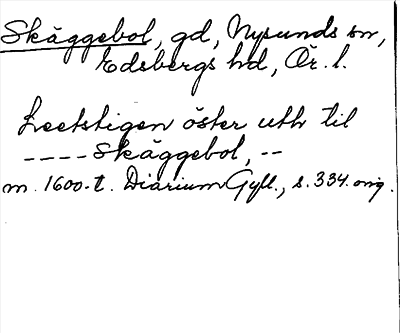 Skäggebol, gd, Nysunds sn,
Edsbergs hd, Ör. l.
Leetstigen öster uth til
---- Skäggebol, --
m. 1600-t. Diarium Gyll., s. 334. orig.